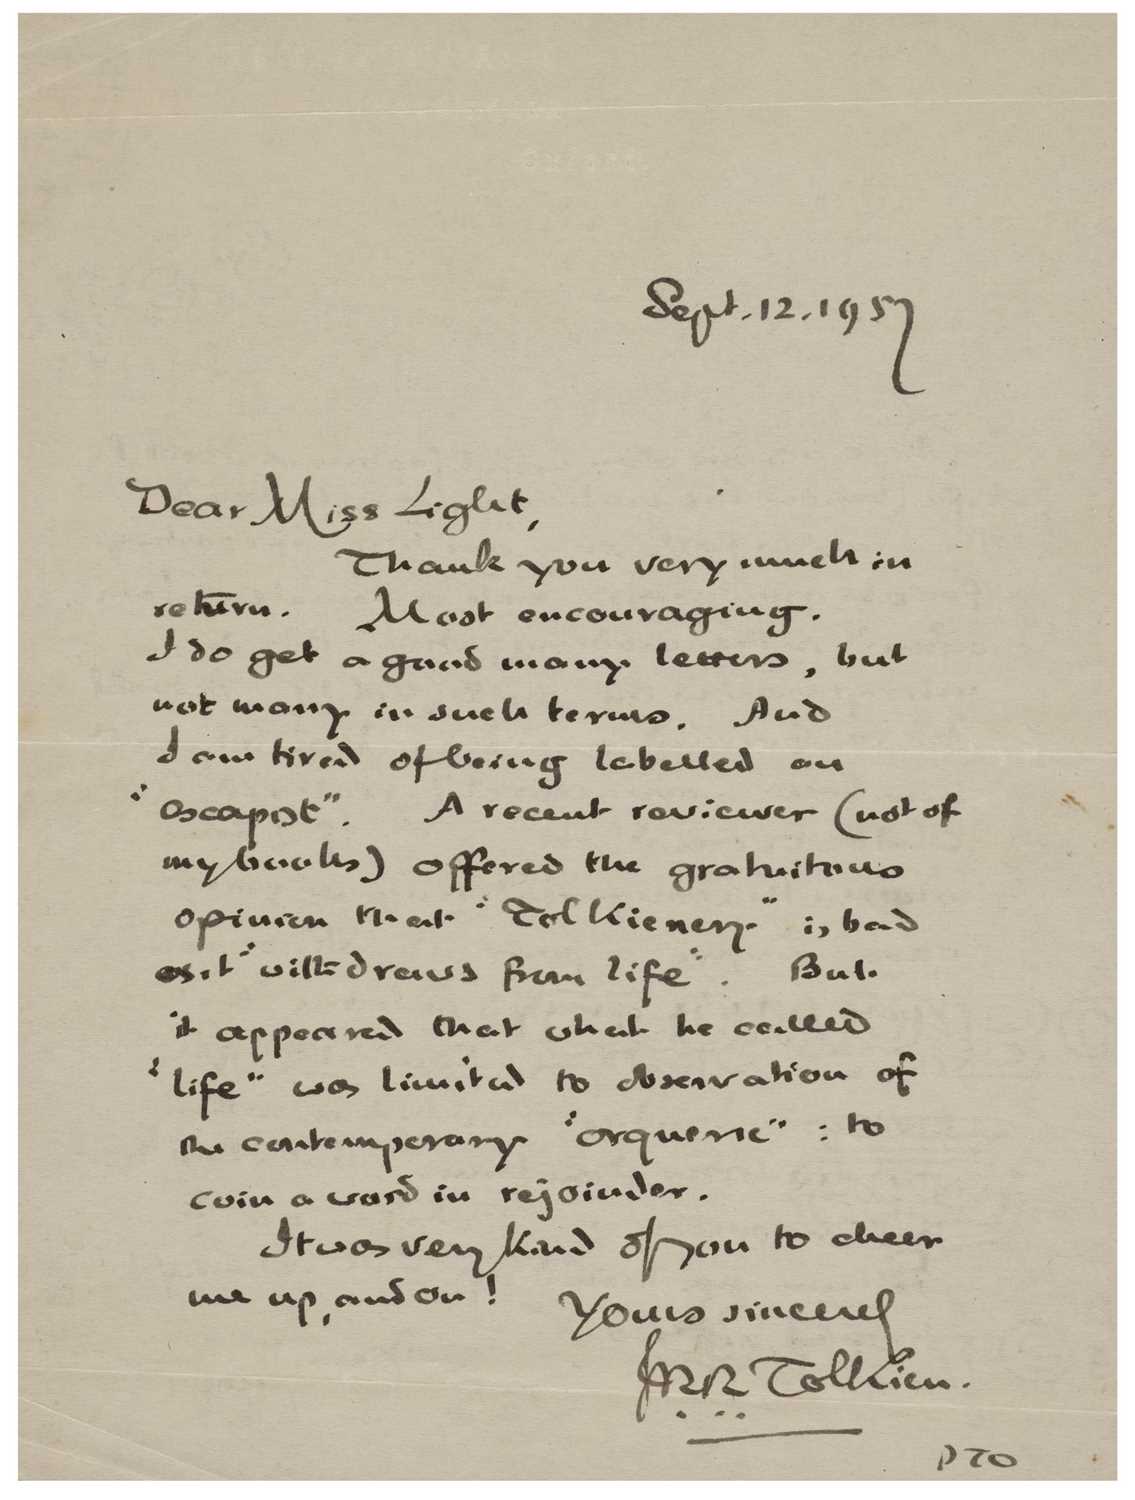 Sept. 12. 1957
Dear Miss Light,
Thank you very much in
return. Most encouraging.
I do get a good many letters, but
not many in such terms. And
I am tired of being labelled an
"escapist". A recent reviewer (not of
my books) offered the gratuitous
opinion that "Tolkienery" is bad
as it "withdraws from life". But
it appeared that what he called
"life" was limited to observation of
the contemporary "orquerie" : to
coin a word in rejoinder.
It was very kind of you to cheer
me up, and on!
Yours sincerely
JRR Tolkien.
PTO